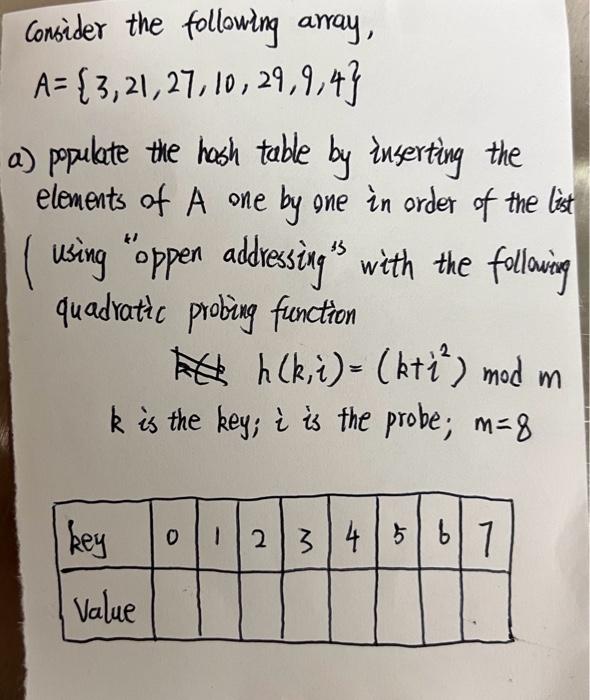 Consider the following array,
A={3,21,27,10,29,9,4}
a) populate the hash table by inserting the
elements of A one by one in order of the list
( using "oppen addressing" with the following
quadratic probing function
h(k,i)=(k+i²) mod m
k is the key; i is the probe; m=8
key 0 1 2 3 4 5 6 7
Value